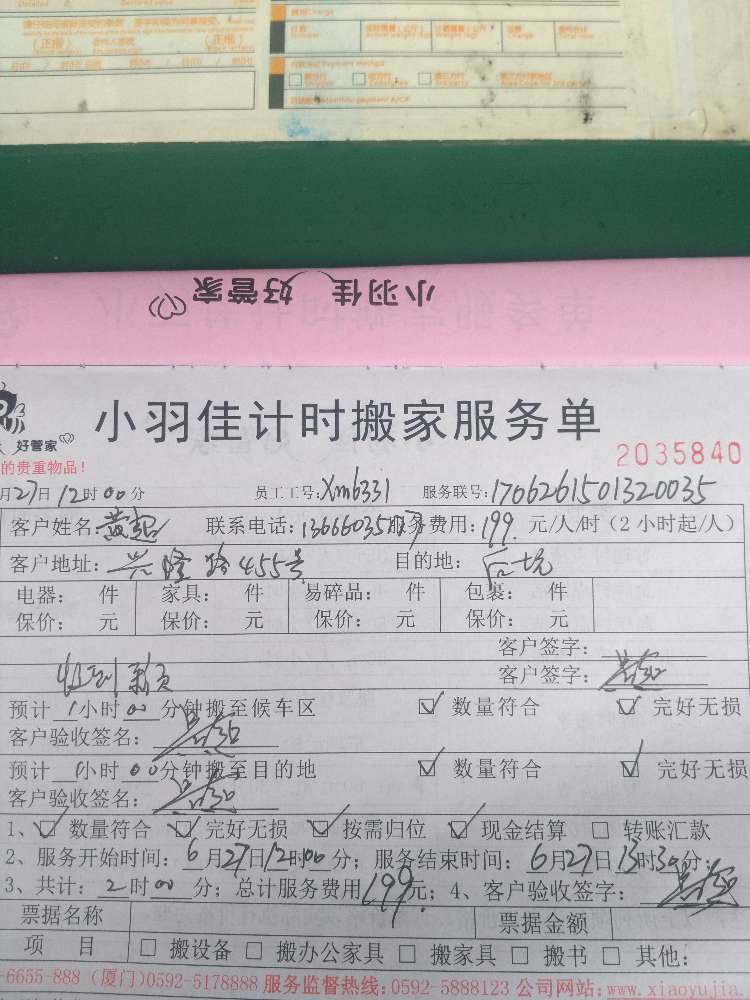 (正楷)
(正楷)
小羽佳 好管家
小羽佳计时搬家服务单
好管家
2035840
的贵重物品!
月27日12时00分 员工工号:Xm6331 服务联号:1706261501320035
客户姓名:黄超 联系电话: 服务费用:199.元/人/时(2小时起/人)
客户地址:兴隆路455号 目的地:后坑
电器: 件 家具: 件 易碎品: 件 包裹: 件
保价: 元 保价: 元 保价: 元 保价: 元
客户签字:
客户签字:
预计1小时00分钟搬至候车区 ☑数量符合 ☑完好无损
客户验收签名:
预计1小时00分钟搬至目的地 ☑数量符合 ☑完好无损
客户验收签名:
1、☑数量符合 ☑完好无损 ☑按需归位 ☑现金结算 □转账汇款
2、服务开始时间:6月27日12时00分;服务结束时间:6月27日13时30分;
3、共计:2时00分;总计服务费用199元;4、客户验收签字:
票据名称 票据金额
项 目 □搬设备 □搬办公家具 □搬家具 □搬书 □其他:
-6655-888(厦门)0592-5178888 服务监督热线:0592-5888123 公司网站:www.xiaoyujia.